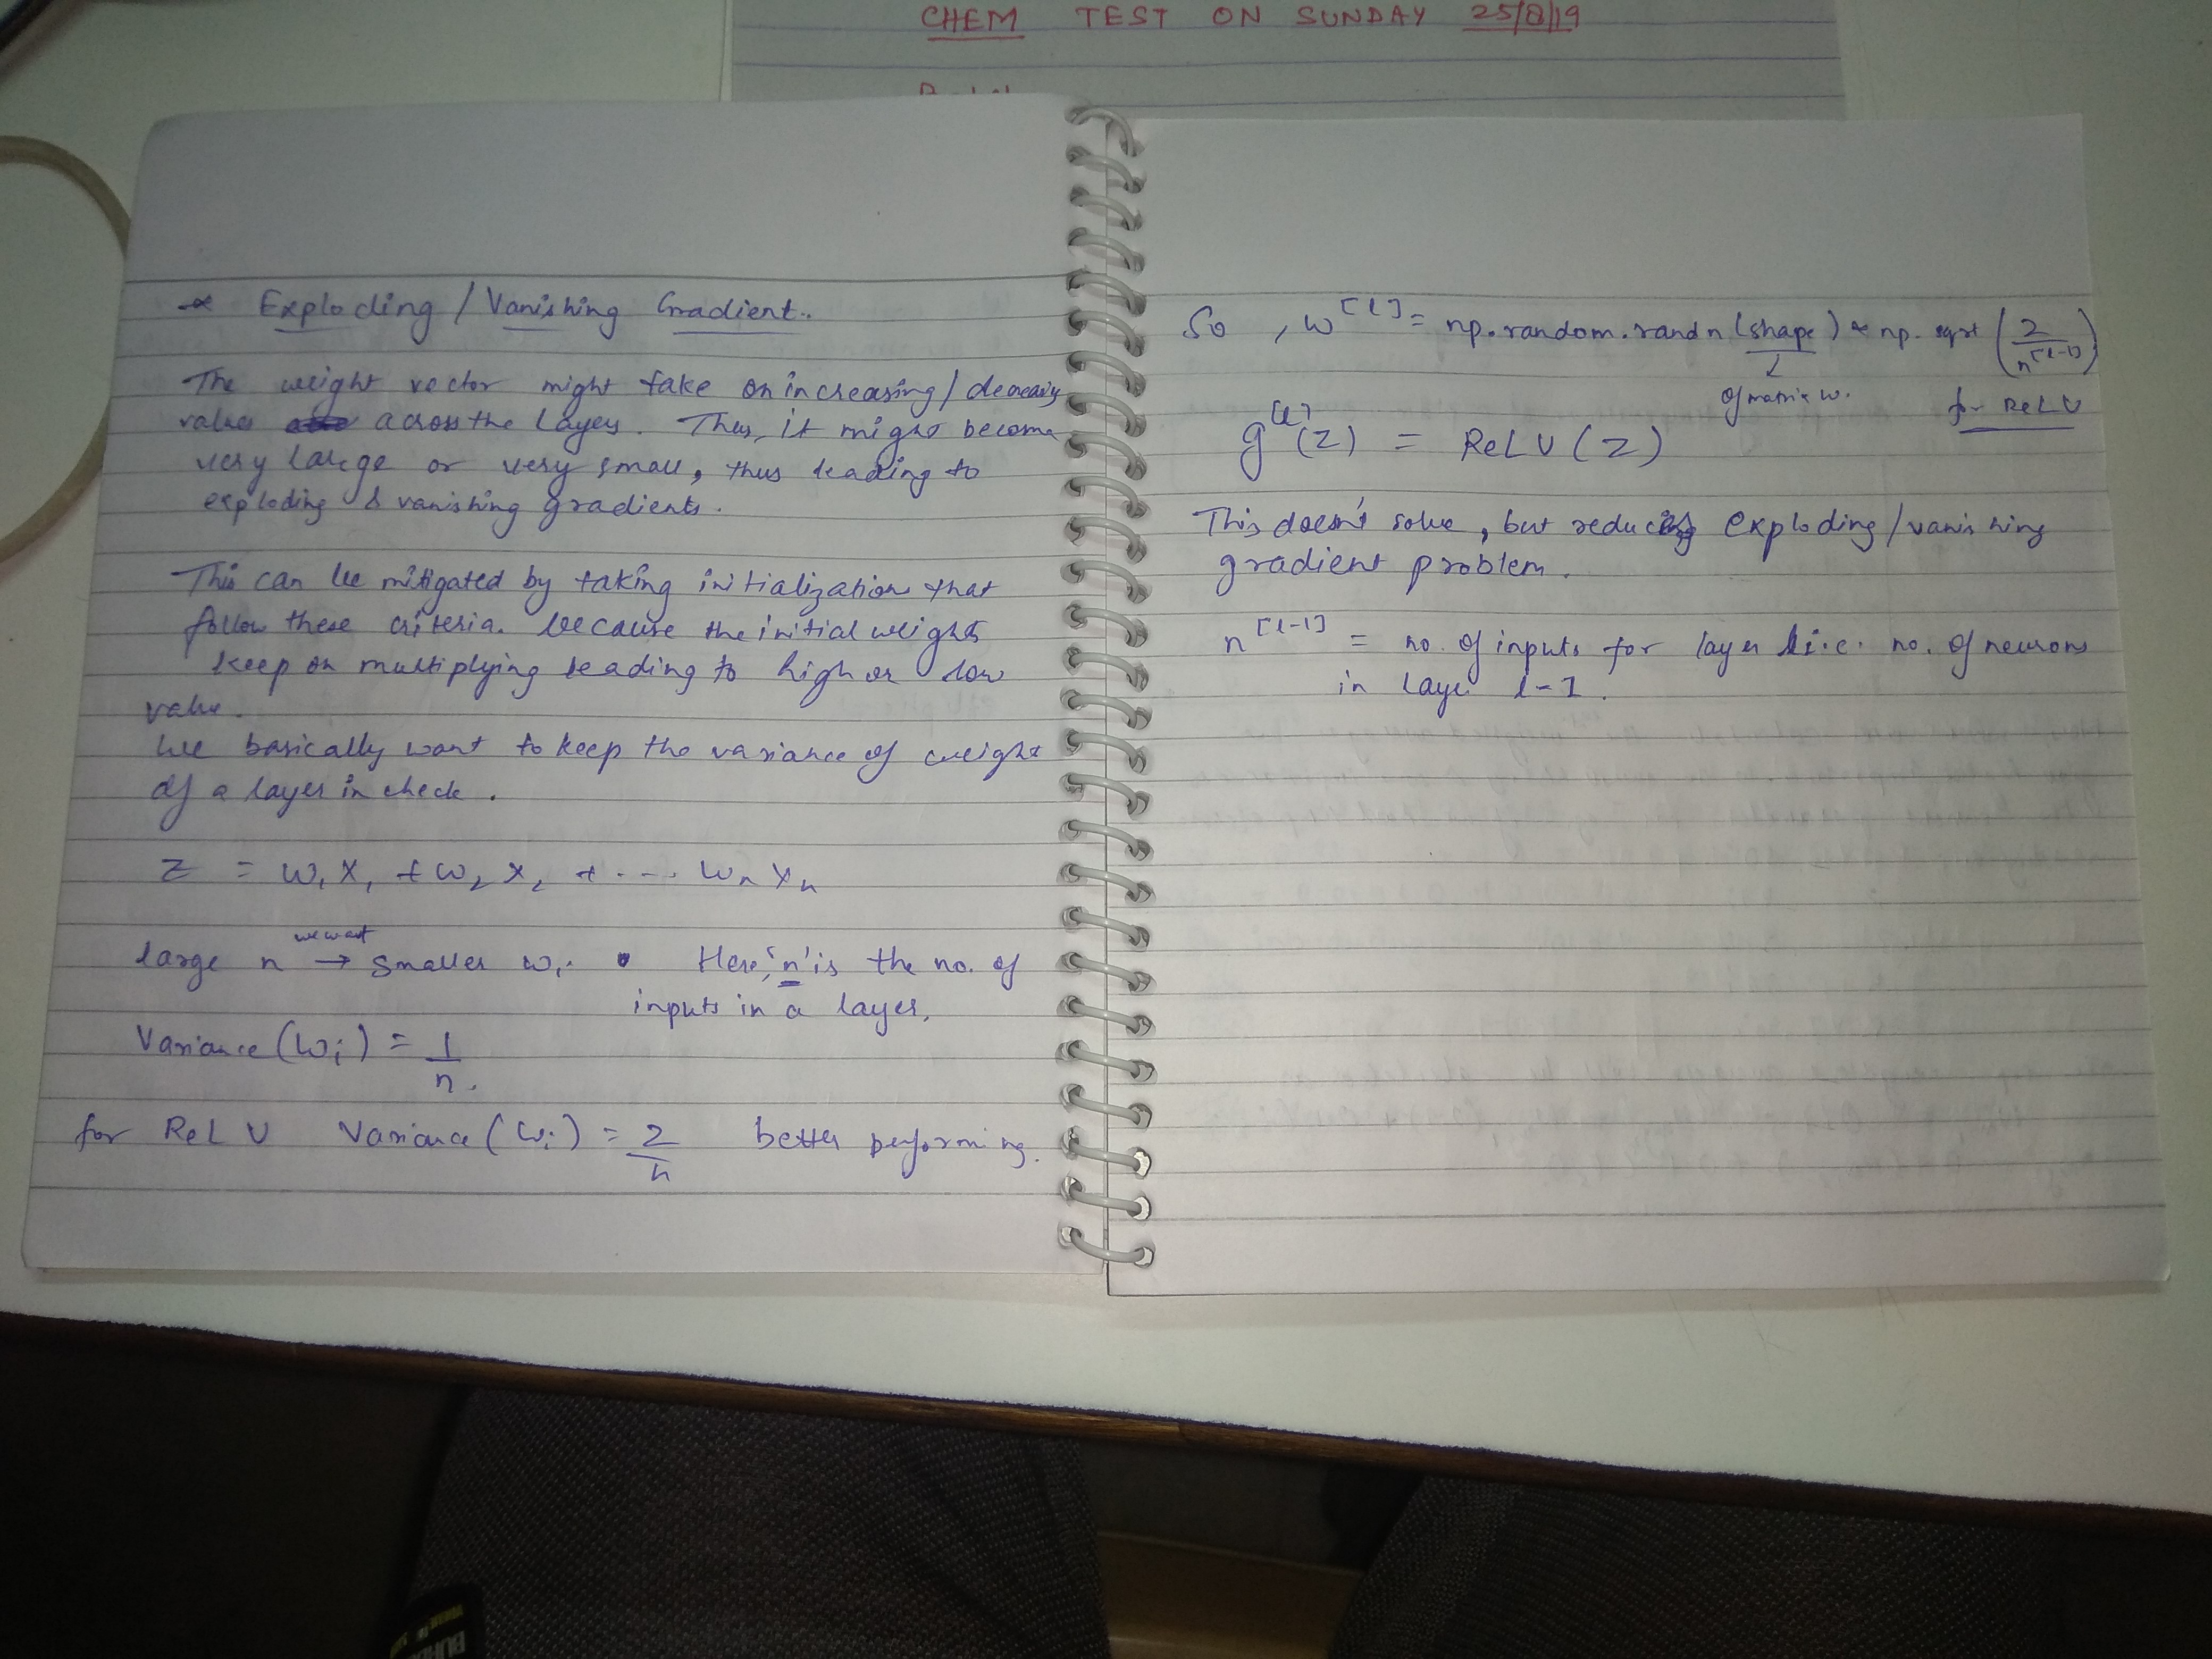 CHEM TEST ON SUNDAY 25/8/19
* Exploding / Vanishing Gradient.
The weight vector might take on increasing / decreasing
values across the layers. Thus, it might become
very large or very small, thus leading to
exploding & vanishing gradients.
This can be mitigated by taking initialization that
follow these criteria. because the initial weights
keep on multiplying leading to high or low
value.
We basically want to keep the variance of weight
of a layer in check.
z = w₁x₁ + w₂x₂ + ... wₙxₙ
we want
large n → smaller wᵢ. Here, 'n' is the no. of
inputs in a layer.
Variance(wᵢ) = 1/n.
for ReLU Variance(wᵢ) = 2/n better performing.
So, w^[l] = np.random.randn(shape) * np.sqrt(2/n^[l-1])
↓
of matrix w. for ReLU
g^[l](z) = ReLU(z)
This doesn't solve, but reduces exploding/vanishing
gradient problem.
n^[l-1] = no. of inputs for layer l i.e. no. of neurons
in layer l-1.